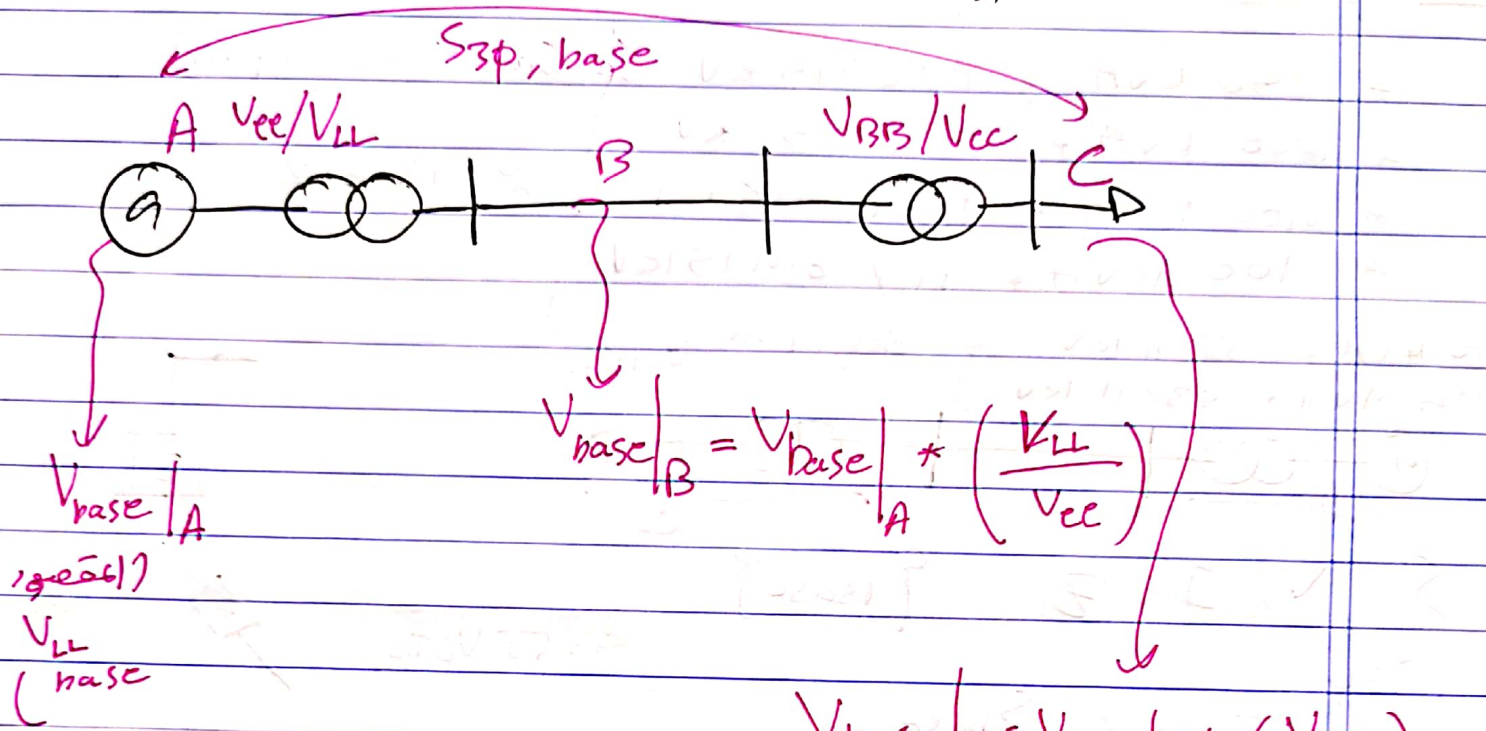 S3φ, base
A Vll/VLL
B
VBB/VCC
C
G
Vbase|B = Vbase|A * (VLL / Vll)
Vbase|A
VLL
base